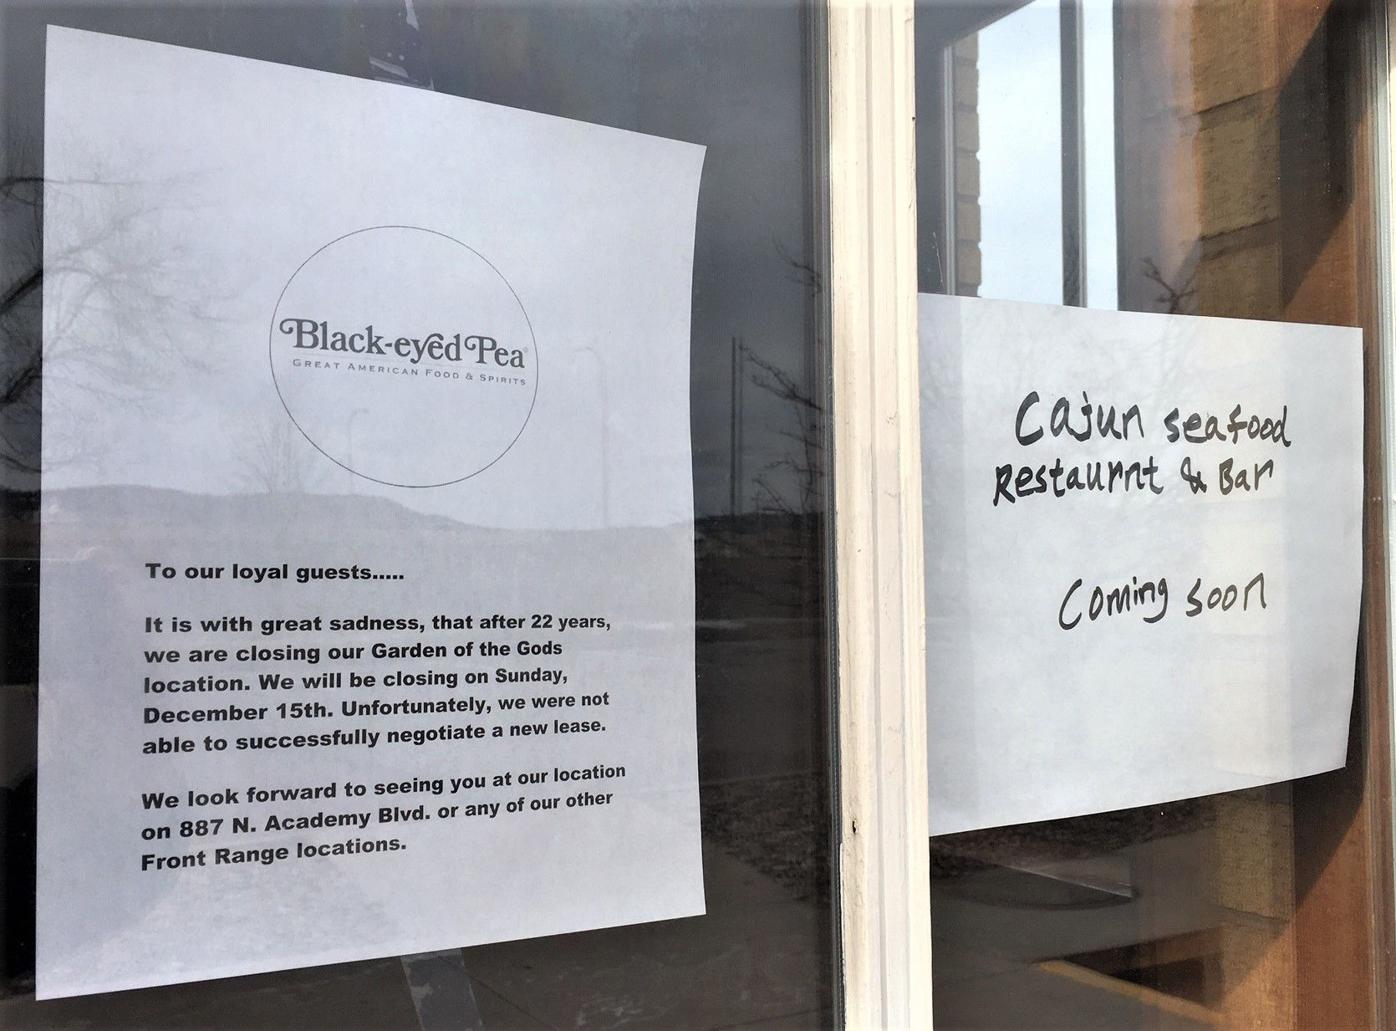 Black-eyed Pea
GREAT AMERICAN FOOD & SPIRITS
To our loyal guests.....
It is with great sadness, that after 22 years,
we are closing our Garden of the Gods
location. We will be closing on Sunday,
December 15th. Unfortunately, we were not
able to successfully negotiate a new lease.
We look forward to seeing you at our location
on 887 N. Academy Blvd. or any of our other
Front Range locations.
Cajun seafood
Restaurnt & Bar
Coming soon